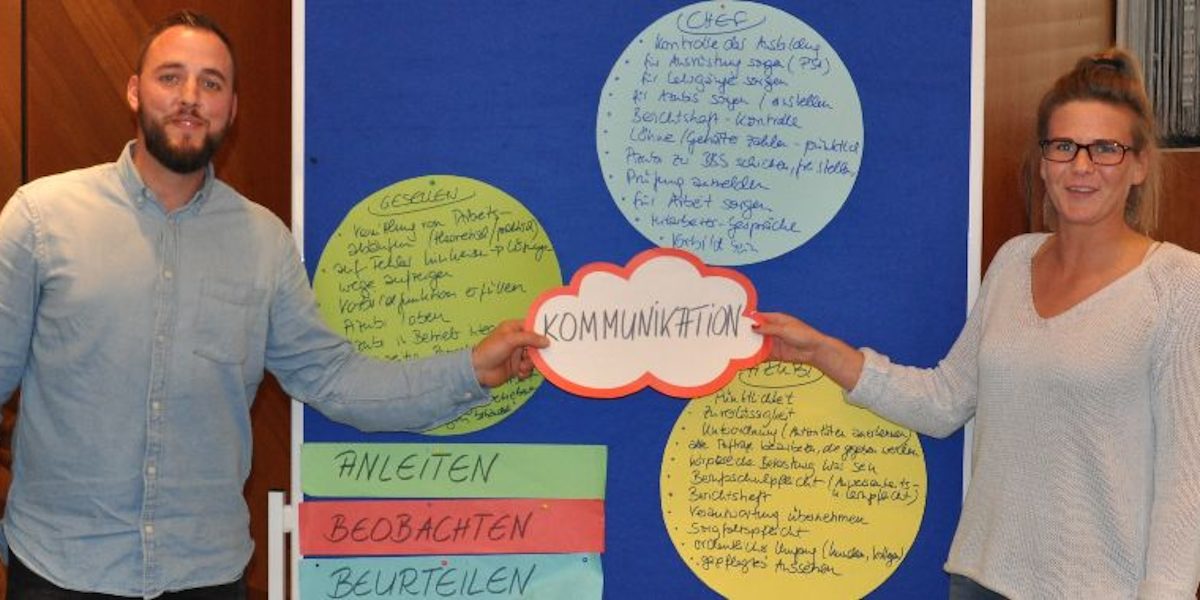 CHEF
• Kontrolle der Ausbildung
• für Ausrüstung sorgen (PSA)
• für Lehrgänge sorgen
• für Azubis sorgen / einstellen
• Berichtsheft-Kontrolle
• Löhne/Gehälter zahlen - pünktlich
• Azubi zu BBS schicken, freistellen,
• Prüfung anmelden
• für Arbeit sorgen
• Mitarbeiter-Gespräche
• Vorbild sein
GESELLEN
• von Arbeits-
abläufen (theoretisch/praktisch)
• auf Fehler hinweisen → Lösungs-
wege aufzeigen
• Vorbildfunktion erfüllen
• Azubi loben
Azubi in Betrieb
KOMMUNIKATION
AZUBI
• Pünktlichkeit
• Zuverlässigkeit
• Unterordnung (Autoritäten anerkennen)
• alle Aufträge bearbeiten, die gegeben werden
• körperliche Belastung
• Berufsschulpflicht (Anwesenheits-
u Lernpflicht)
• Berichtsheft
• Verantwortung übernehmen
• Sorgfaltspflicht
• ordentlicher Umgang (Kunden, Kollegen)
• gepflegtes Aussehen
ANLEITEN
BEOBACHTEN
BEURTEILEN